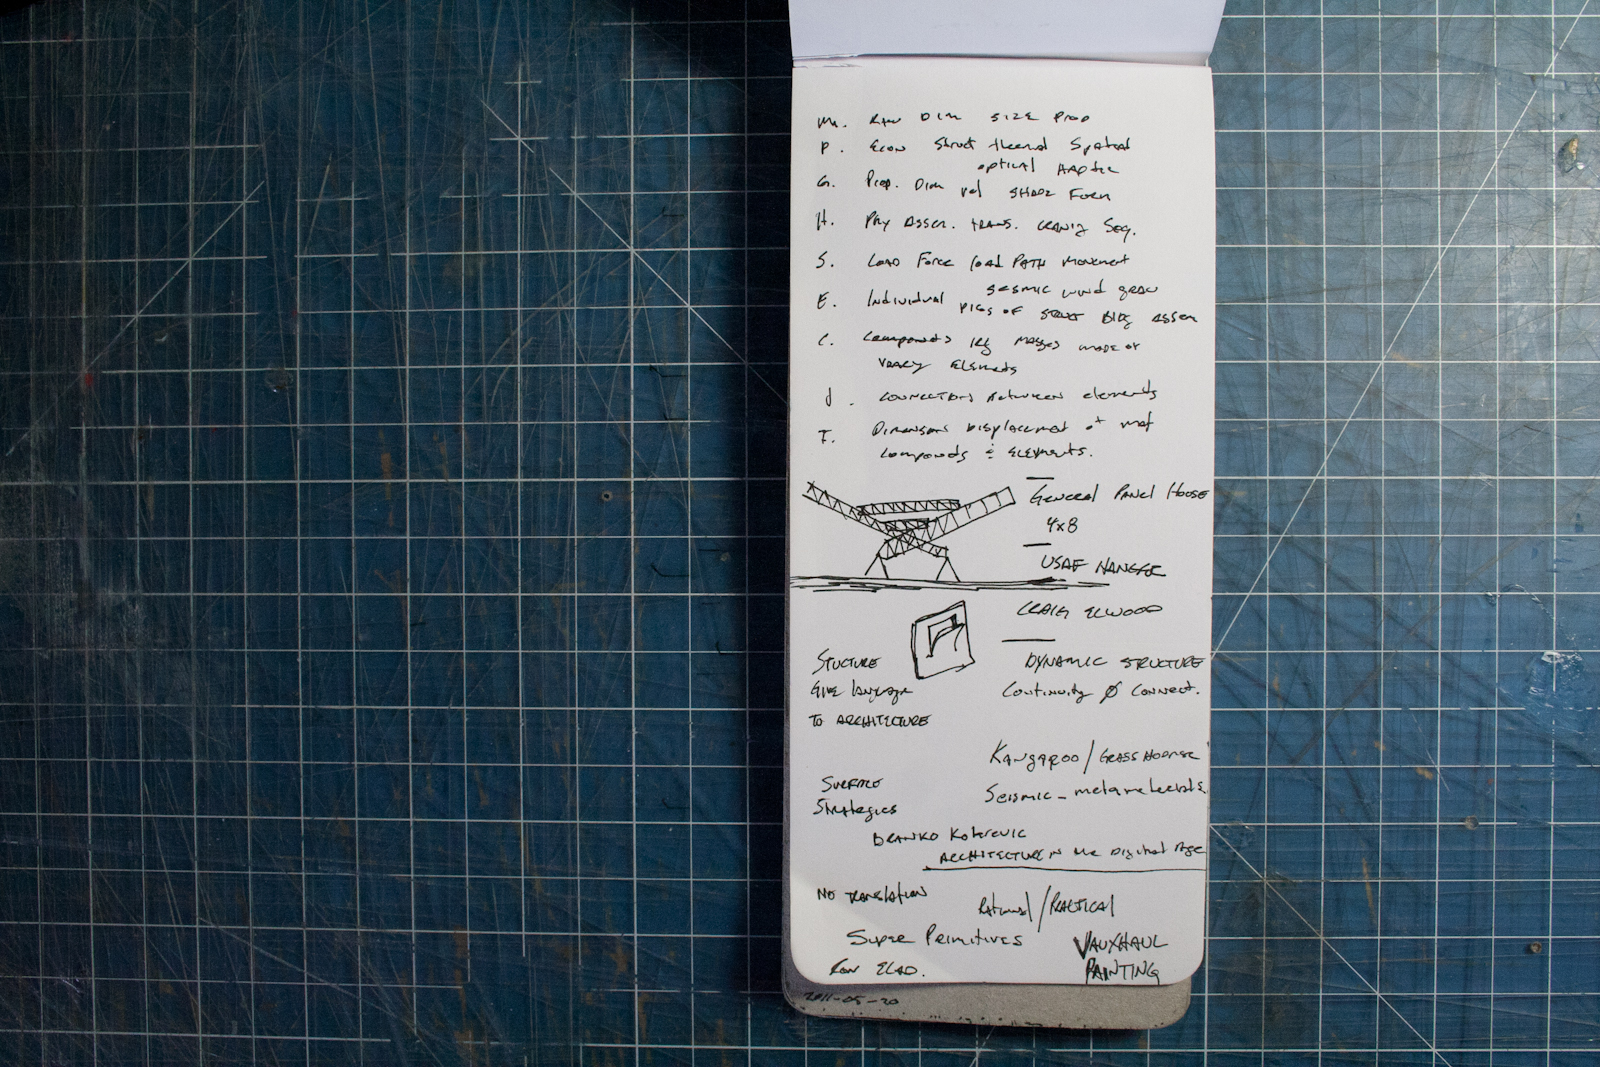 M. RAW DIM SIZE PROP
P. ECON Struct thermal Spatial
optical HAPTIC
G. Prop. Dim rel SHAPE Form
H. Phy Assem. TRANS. CRANING Seq.
S. LOAD Force load PATH Movement
SEISMIC wind grav
E. Individual
PIECES OF STRUCT Bldg Assem
C. Components
MASSES MADE OF
VARRY ELEMENTS
J. CONNECTIONS BETWEEN elements
T. Dimensions Displacement of mat
Components & ELEMENTS.
General Panel House
4x8
USAF HANGER
CRAIG ELWOOD
STUCTURE
GIVE language
TO ARCHITECTURE
DYNAMIC STRUCTURE
Continuity Ø CONNECT.
Kangaroo/GRASSHOPPER
SURFACE
Strategies
Seismic - metamaterials
BRANKO Kolarevic
ARCHITECTURE IN the Digital Age
NO TRANSLATION
Rational/PRACTICAL
Super Primitives
VAUXHAUL
PAINTING
RON ELAD.
2011-05-20